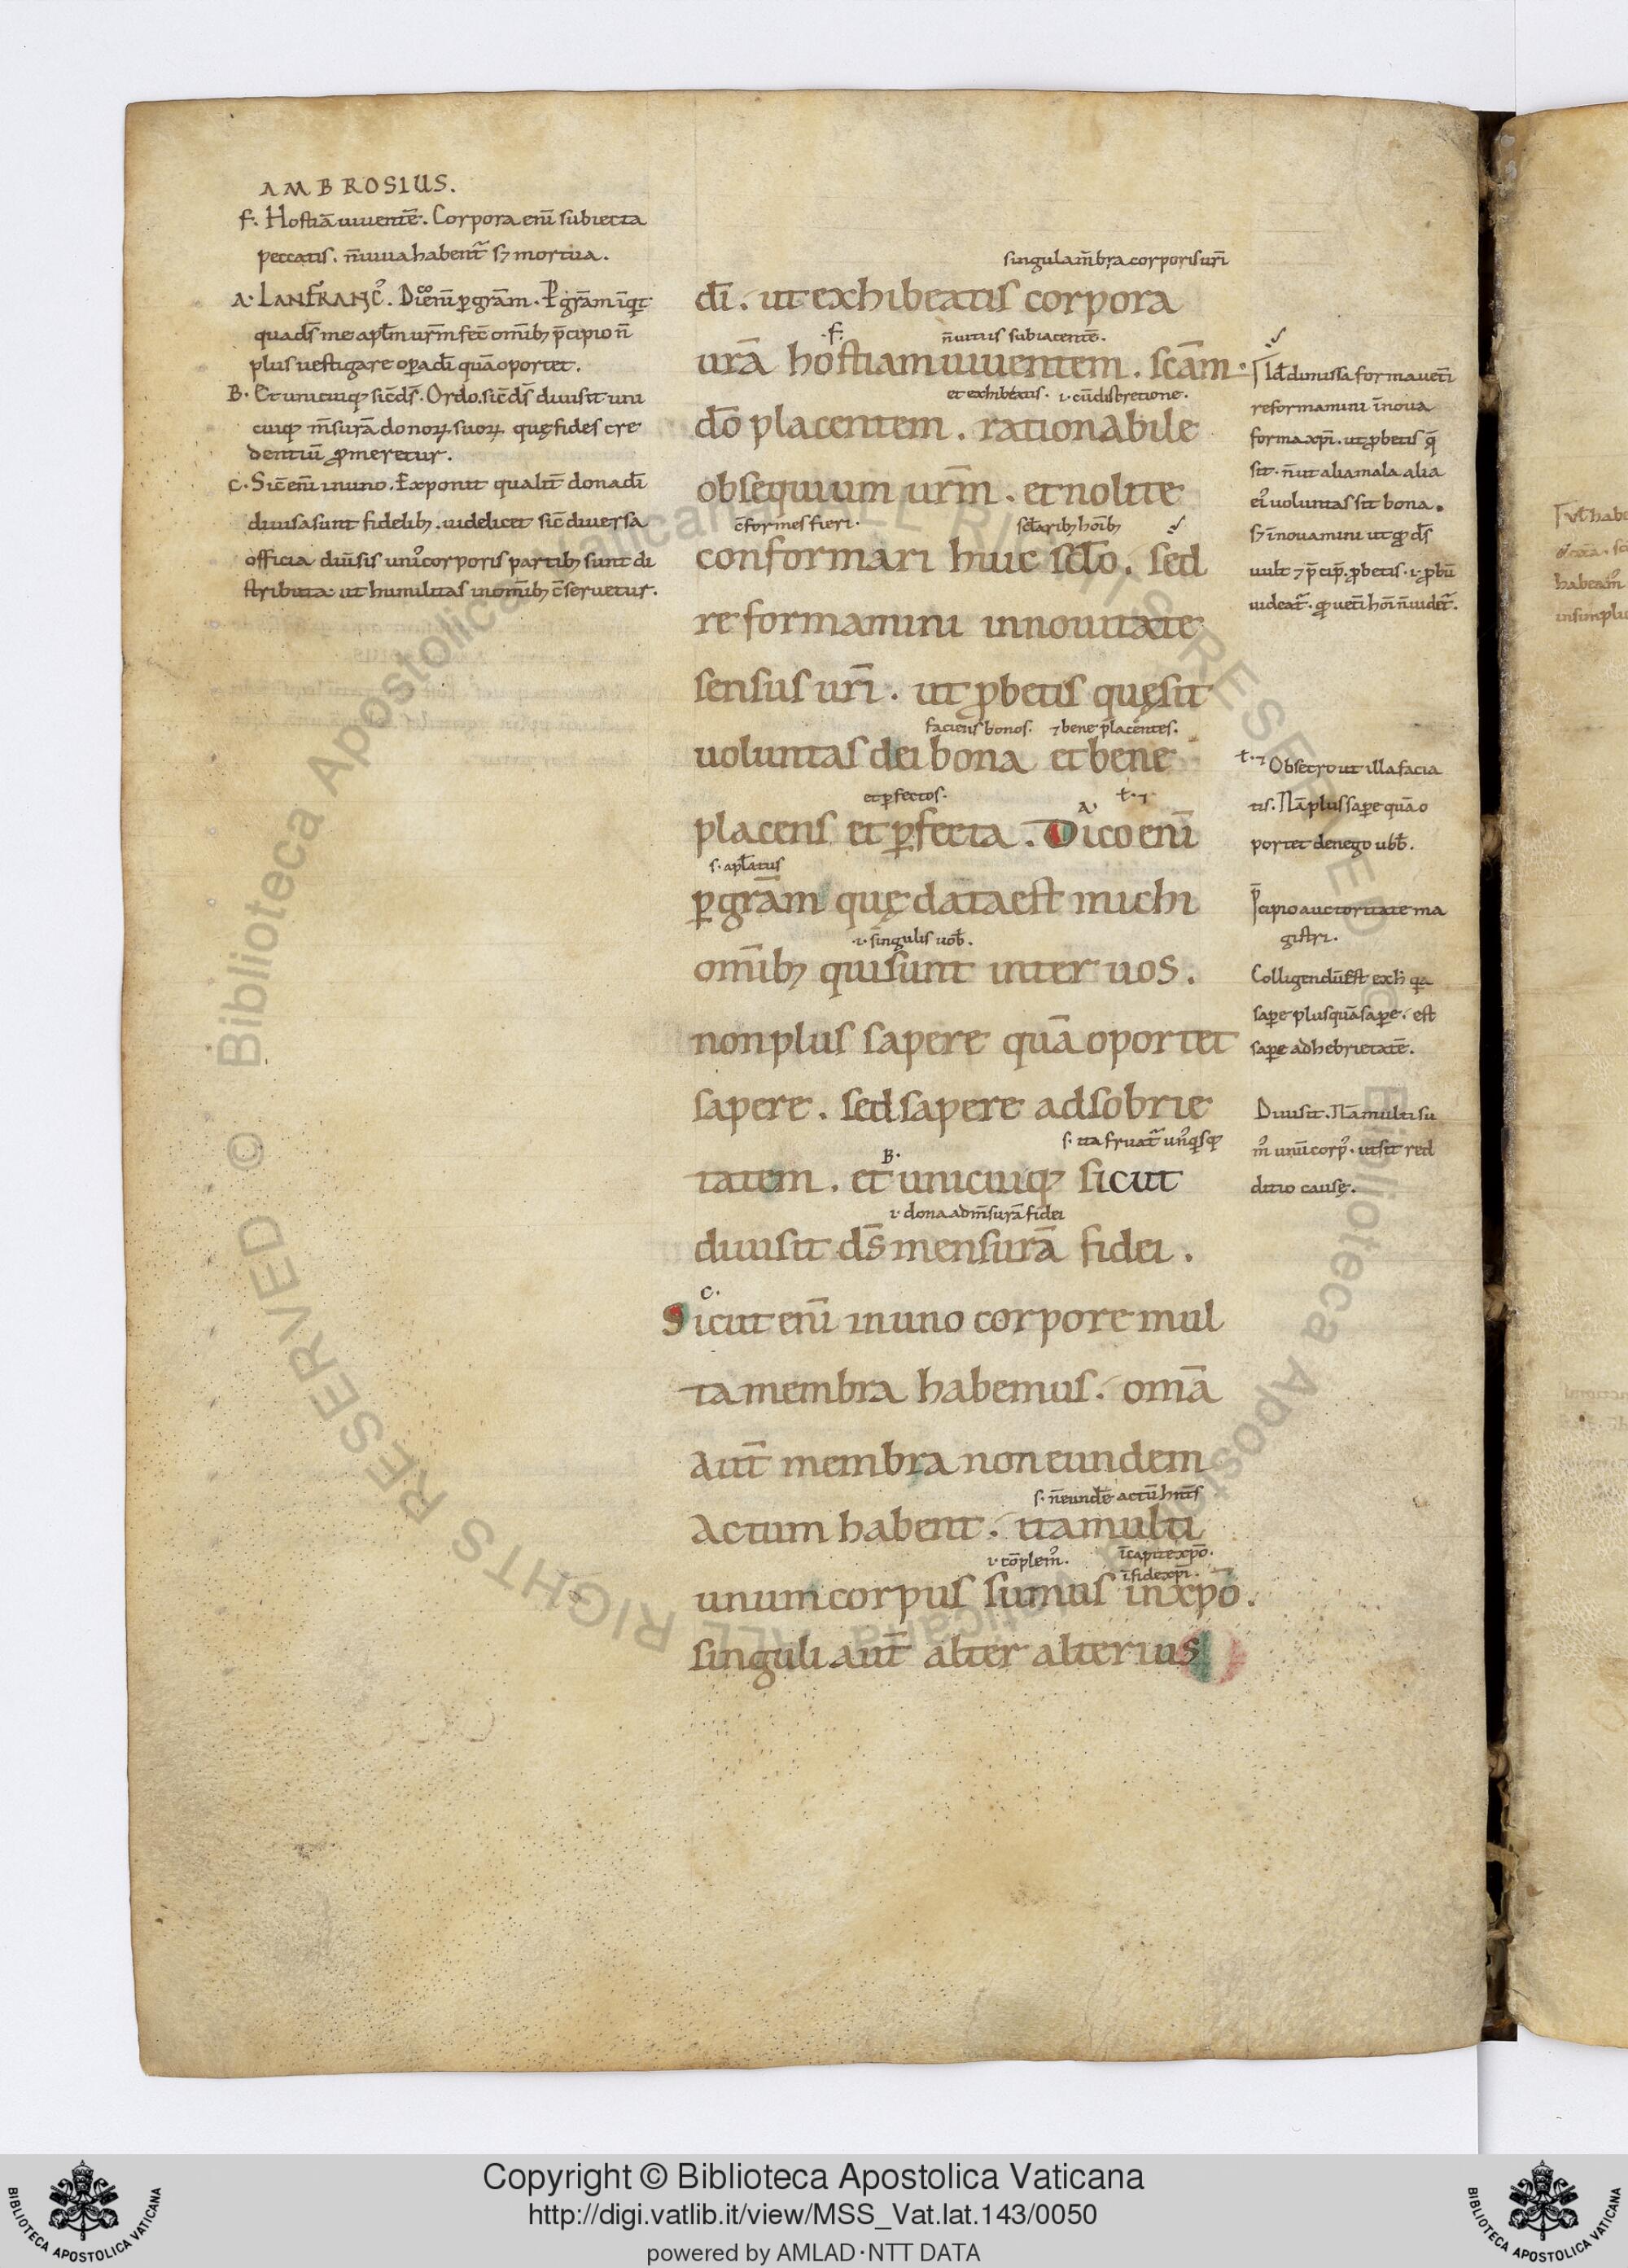 AMBROSIUS.
f. Hostiā uiuentē. Corpora eni̅ subiecta
peccatis. n̅ uiua habent̃ sꝫ mortua.
A. LANFRANC᷒. Dico eni̅ ꝑ gr̅am. P̲ gr̅am inqt
qua ds̅ me apl̅m ur̅m fec̅ omi̅bꝫ p̅cipio n̅
plus uestigare oꝑa dī quā oportet.
B. Et unicuiqꝫ sic̅ ds̅. Ordo. sic̅ ds̅ diuisit uni
cuiqꝫ m̅surā donoꝝ suoꝝ quę fides cre
dentiū ꝓmeretur.
C. Sic̅ eni̅ in uno. Exponit qualit̅ dona dī
diuisa sunt fidelibꝫ. uidelicet sic̅ diuersa
officia diu̅sis uni᷒ corporis partibꝫ sunt di
stributa. ut humilitas in omi̅bꝫ c̅seruetur.
singula m̅bra corporis ur̅i
dī. ut exhibeatis corpora
.f. n̅ uitiis subiacentē.
ur̅ā hostiam uiuentem. sc̅am.
et exhibeatis. .i. cū discretione.
dō placentem. rationabile
obsequium ur̅m. et nolite
c̅formes fieri. scl̅aribꝫ ho̅ibꝫ
conformari huic scl̅o. sed
reformamini in nouitate
sensus ur̅i. ut ꝓbetis quę sit
faciens bonos. ⁊ bene placentes.
uoluntas dei bona et bene
et ꝑfectos. A. ƚ.⁊
placens et ꝑfecta. Dico eni̅
s. apl̅atus
ꝑ gr̅am quę data est michi
.i. singulis uob̅.
omi̅bꝫ qui sunt inter uos.
non plus sapere quā oportet
sapere. sed sapere ad sobrie
s. ita fruat̃ un᷒qsqꝫ
B.
tatem. et unicuiqꝫ sicut
.i. dona ad m̅surā fidei
diuisit ds̅ mensurā fidei.
C.
Sicut eni̅ in uno corpore mul
ta membra habemus. om̅a
aut̅ membra non eundem
s. n̅ eundē actū hn̅tes
actum habent. ita multi
.i. co̅plem᷒. i̅ capite xp̅o.
i̅ fide xp̅i.
unum corpus sumus in xp̅o.
singuli aut̅ alter alterius
Id̅ dimissa forma uet̅i
reformamini i̅ noua
forma xp̅i. ut ꝓbetis q̅
sit. n̅ ut alia mala alia
ei᷒ uoluntas sit bona.
sꝫ i̅nouamini ut qd̅ ds̅
uult ⁊ p̅cip̅. ꝓbetis. .i. ꝓbū
uideat̃. qd̅ uet̅i ho̅i n̅ uidet̃.
ƚ.⁊ Obsecro ut illa facia
tis. Nā plus saꝑe quā o
portet denego uob̅.
p̅cipio auctoritate ma
gistri.
Colligendū est ex h̅ qa
saꝑe plus quā saꝑe. est
saꝑe ad hebrietatē.
Diuisit. Nā multi su
m᷒ unū corp᷒. ut sit red
ditio causę.
Copyright © Biblioteca Apostolica Vaticana
http://digi.vatlib.it/view/MSS_Vat.lat.143/0050
powered by AMLAD·NTT DATA
BIBLIOTECA APOSTOLICA VATICANA
BIBLIOTECA APOSTOLICA VATICANA